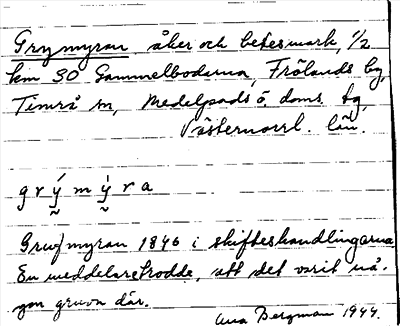 Grymyran åker och betesmark, 1/2
km SO Gammelbodarna, Frölands by,
Timrå sn, Medelpads ö. doms. bg,
Västernorrl. län.
g r ý m ỳ r a
Gruvmyran 1846 i skifteshandlingarna
En meddelare trodde, att det varit nå-
gon gruva där.
Ava Bergman 1944.